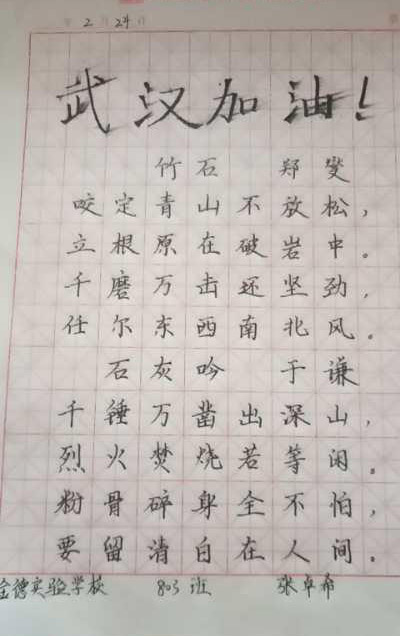 年 2 月 24 日
武汉加油!
竹石 郑燮
咬定青山不放松,
立根原在破岩中。
千磨万击还坚劲,
任尔东西南北风。
石灰吟 于谦
千锤万凿出深山,
烈火焚烧若等闲。
粉骨碎身全不怕,
要留清白在人间。
德实验学校 803班 张卓希